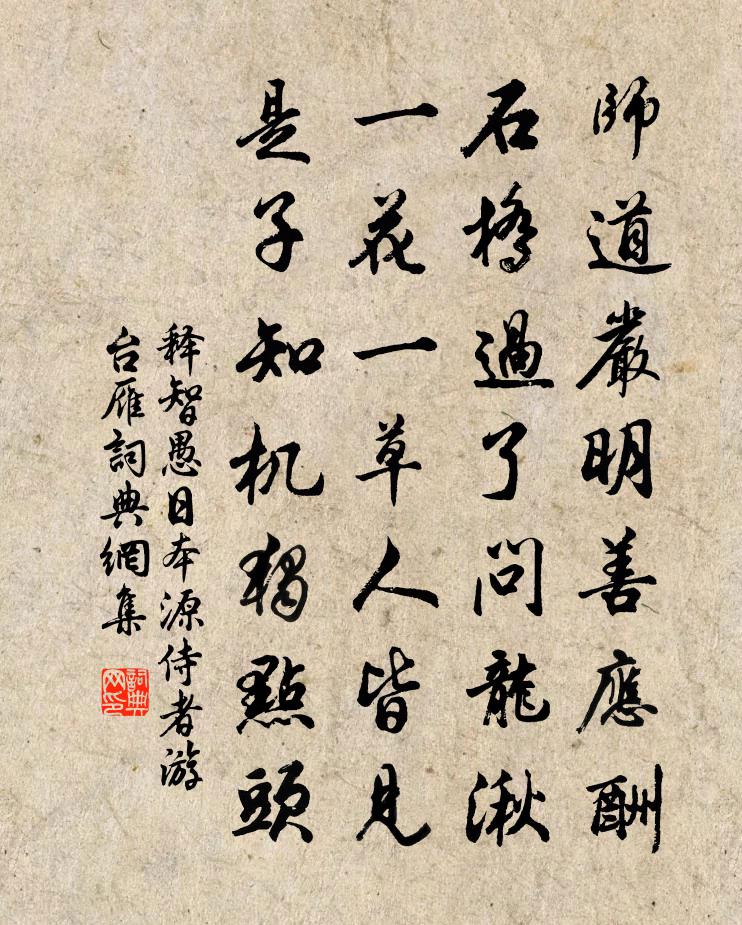 師道嚴明善應酬
石橋過了問龍湫
一花一草人皆見
是子知机獨點頭
释智愚日本源侍者游
台雁詞典網集
詞典
网印